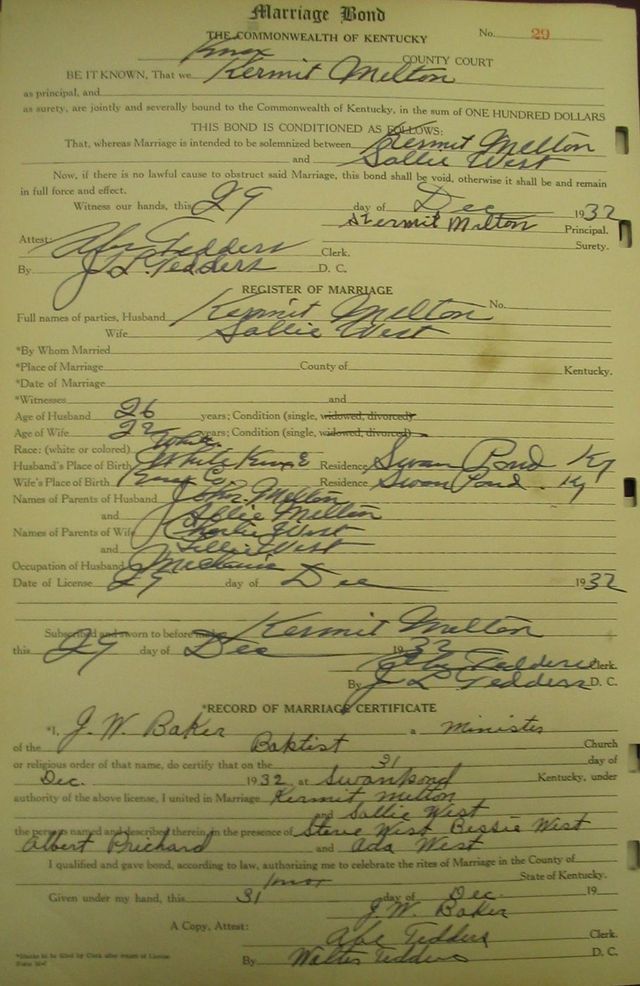 Marriage Bond
THE COMMONWEALTH OF KENTUCKY No. 29
Knox COUNTY COURT
BE IT KNOWN, That we Kermit Melton
as principal, and
as surety, are jointly and severally bound to the Commonwealth of Kentucky, in the sum of ONE HUNDRED DOLLARS
THIS BOND IS CONDITIONED AS FOLLOWS:
That, whereas Marriage is intended to be solemnized between Kermit Melton
and Sallie West
Now, if there is no lawful cause to obstruct said Marriage, this bond shall be void, otherwise it shall be and remain
in full force and effect.
Witness our hands, this 29 day of Dec 1932
Kermit Melton Principal.
Surety.
Attest: Abe Tedders Clerk.
By J L. Tedders D. C.
REGISTER OF MARRIAGE
No.
Full names of parties, Husband Kermit Melton
Wife Sallie West
*By Whom Married
*Place of Marriage County of Kentucky.
*Date of Marriage
*Witnesses and
Age of Husband 26 years; Condition (single, widowed, divorced)
Age of Wife 22 years; Condition (single, widowed, divorced)
Race: (white or colored) White
Husband's Place of Birth Residence Swan Pond Ky
Wife's Place of Birth Knox Co Residence Swan Pond. Ky
Names of Parents of Husband Melton
and Melton
Names of Parents of Wife Charlie West
and West
Occupation of Husband Mechanic
Date of License 29 day of Dec 1932
Subscribed and sworn to before me by Kermit Melton
this 29 day of Dec 1932
Abe Tedders Clerk.
By J L Tedders D. C.
*RECORD OF MARRIAGE CERTIFICATE
*I, J. W. Baker a minister
of the Baptist Church
or religious order of that name, do certify that on the 31 day of
Dec. 1932 at Swanpond Kentucky, under
authority of the above license, I united in Marriage Kermit Melton
and Sallie West
the persons named and described therein, in the presence of Steve West Bessie West
Albert Prichard and Ada West
I qualified and gave bond, according to law, authorizing me to celebrate the rites of Marriage in the County of
Knox State of Kentucky.
Given under my hand, this 31 day of Dec. 19
J. W. Baker
A Copy, Attest: Abe Tedders Clerk.
By Walter Tedders D. C.
*Blanks to be filled by Clerk after return of License